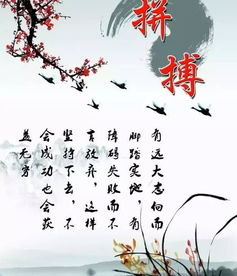 拼搏
有远大志向而
脚踏实地,有
障碍失败而不
言放弃,这样
坚持下去,不
会成功也会获
益无穷